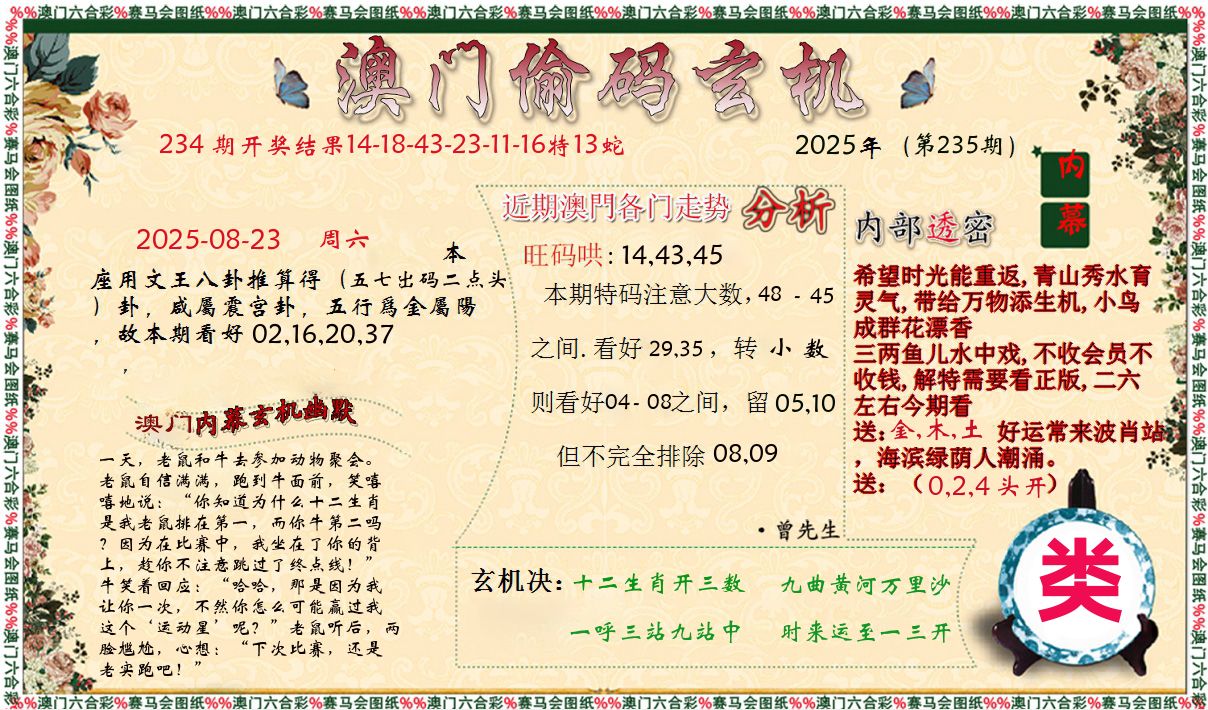 %%澳门六合彩%赛马会图纸%%澳门六合彩%赛马会图纸%%澳门六合彩%赛马会图纸%%澳门六合彩%赛马会图纸%%澳门六合彩%赛马会图纸%%澳门六合彩%赛马会图纸%%澳门六合彩%赛马会图纸%%
澳门偷码玄机
234 期开奖结果14-18-43-23-11-16特13蛇
2025年（第235期）
内幕
2025-08-23 周六
本
座用文王八卦推算得（五七出码二点头
）卦，咸屬震宫卦，五行爲金屬陽
，故本期看好 02,16,20,37
，
澳门内幕玄机幽默
一天，老鼠和牛去参加动物聚会。
老鼠自信满满，跑到牛面前，笑嘻
嘻地说：“你知道为什么十二生肖
是我老鼠排在第一，而你牛第二吗
？因为在比赛中，我坐在了你的背
上，趁你不注意跳过了终点线！”
牛笑着回应：“哈哈，那是因为我
让你一次，不然你怎么可能赢过我
这个‘运动星’呢？”老鼠听后，两
脸尴尬，心想：“下次比赛，还是
老实跑吧！”
近期澳門各门走势 分析
旺码哄：14,43,45
本期特码注意大数，48 - 45
之间. 看好 29,35 ，转 小 数
则看好04- 08之间，留 05,10
但不完全排除 08,09
·曾先生
内部透密
希望时光能重返, 青山秀水育
灵气, 带给万物添生机, 小鸟
成群花漂香
三两鱼儿水中戏, 不收会员不
收钱, 解特需要看正版, 二六
左右今期看
送: 金,木,土 好运常来波肖站
，海滨绿荫人潮涌。
送: （0,2,4 头开）
玄机决：十二生肖开三数 九曲黄河万里沙
一呼三站九站中 时来运至一三开
类
%%澳门六合彩%赛马会图纸%%澳门六合彩%赛马会图纸%%澳门六合彩%赛马会图纸%%澳门六合彩%赛马会图纸%%澳门六合彩%赛马会图纸%%澳门六合彩%赛马会图纸%%澳门六合彩%赛马会图纸%%